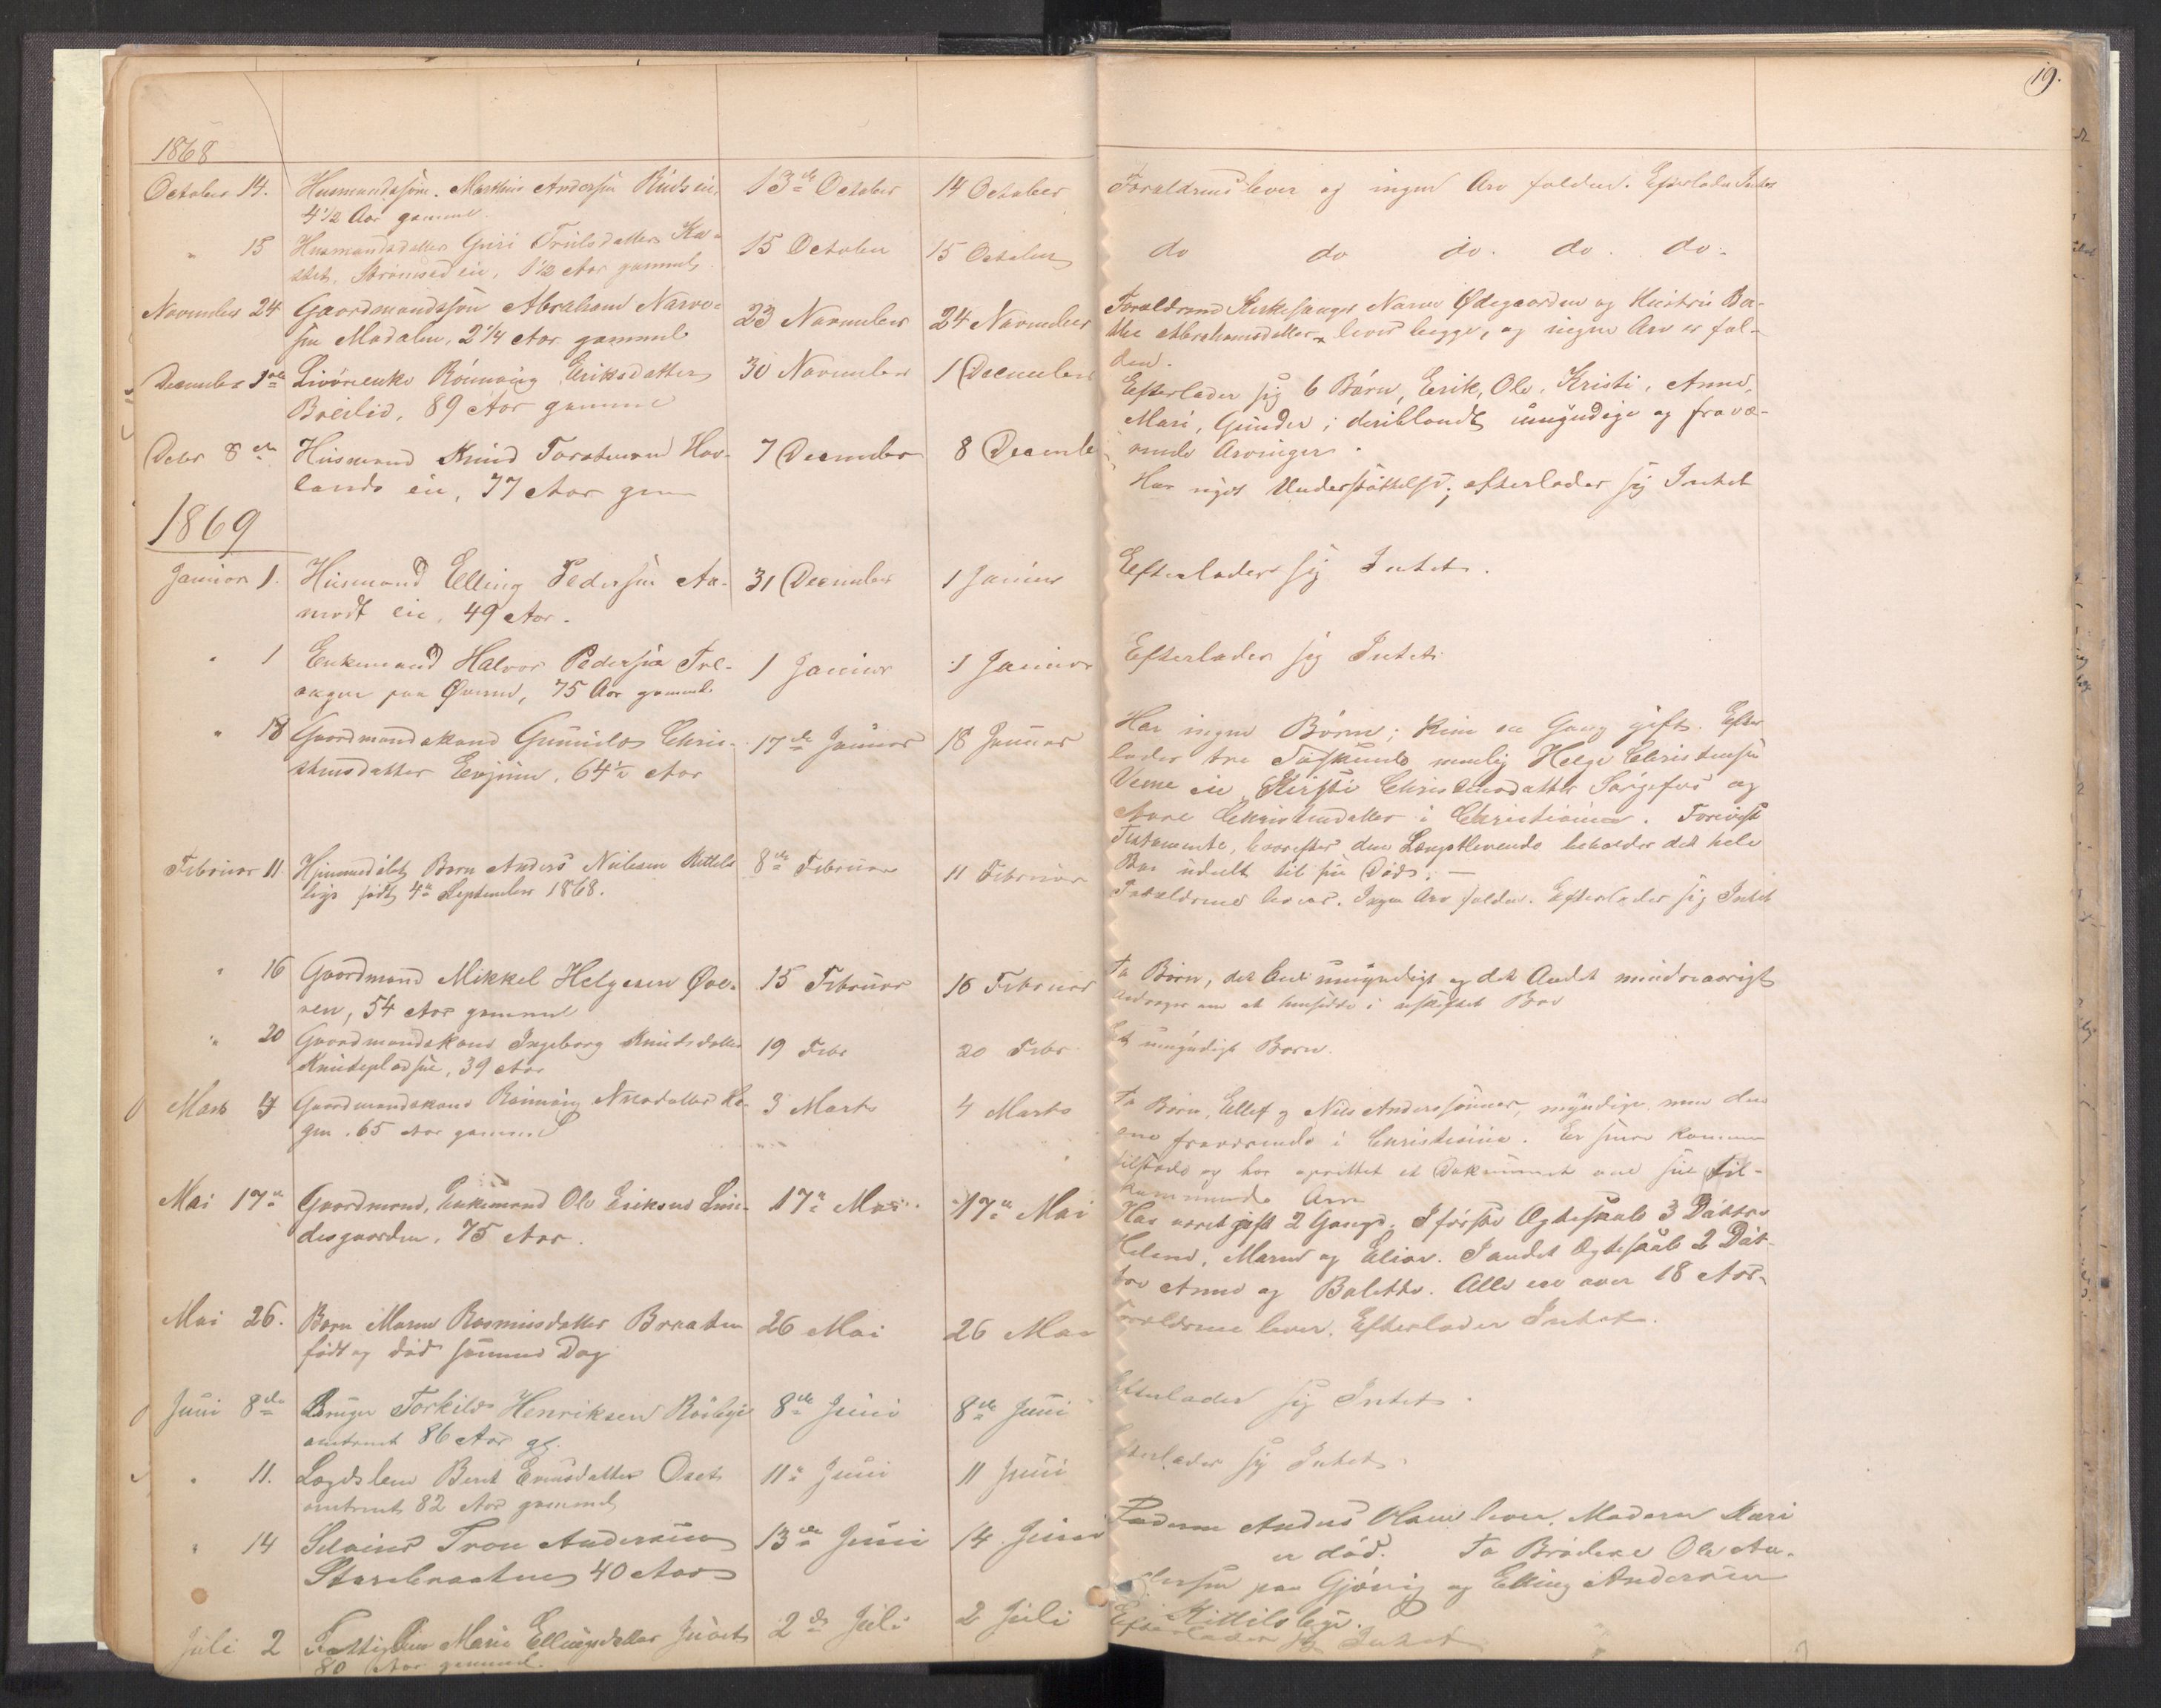 19.
1868
October 14. Husmandssøn. Marthin Andersen Rudseie, 13de October 14 October Forældrene lever og ingen Arv falden. Efterlader Intet
4 1/2 Aar gammel.
" 15 Husmandsdatter Guri Trulsdatter 15 October 15 October do do do. do. do.
eie, 1 1/2 Aar gammel
November 24 Gaardmandssøn Abraham Narve- 23 November 24 November Forældrene Kirkesanger Narve Ødegaarden og Hustru
sen Modalen, 2 1/4 Aar gammel Abrahamsdatter lever begge, og ingen Arv er fal-
den.
December 1ste Livørenke Rønnaug Eriksdatter 30 November 1 December Efterlader sig 6 Børn, Erik, Ole, Kristi, Anne,
Breilid, 89 Aar gammel Mari, Gunder; deriblandt umyndige og fravæ-
rende Arvinger.
Decbr 8de Husmand Knud Torstensen Hav- 7 December 8 Decembe Har nydt Understøttelse; efterlader sig Intet
lands eie, 77 Aar gam
1869
Januar 1. Husmand Elling Pedersen Aa- 31 December 1 Januar Efterlader sig Intet.
modt eie, 49 Aar.
" 1 Enkemand Halvor Pedersen 1 Januar 1 Januar Efterlader sig Intet.
paa 75 Aar gammel
" 18 Gaardmandskone Gunild Chri- 17de Januar 18 Januar Har ingen Børn; kun en Gang gift. Efter
stensdatter Evjuen, 64 1/2 Aar lader tre Søskende nemlig Helge Christensen
Veme eie, Kirsti Christensdatter og
Anne Christensdatter i Christiania.
Testamente, hvorefter den Længstlevende beholder det hele
Bo udeelt til sin Død. —
Februar 11. Barn Anders Nielsen 8de Februar 11 Februar Forældrene lever. Ingen Arv falden. Efterlader sig Intet
født 4de September 1868.
" 16 Gaardmand Mikkel Helgesen 15 Februar 16 Februar To Børn, det Ene umyndigt og det Andet mindreaarigt
54 Aar gammel Andrager om at hensidde i uskiftet Bo
" 20 Gaardmandskone Ingeborg Knudsdatter 19 Febr 20 Febr. Et umyndigt Barn.
Knudspladsen, 39 Aar
Marts 4 Gaardmandskone Rønnaug 3 Marts 4 Marts To Børn, Ellef og Nils Anderssønner, myndige, men den
65 Aar gammel ene fraværende i Christiania. Er senere kommen
tilstede og har oprettet et Dokument om sin til-
kommende Arv
Mai 17de Gaardmand, Enkemand Ole Eriksen Lin- 17de Mai 17de Mai Har været gift 2 Gange. I første Ægteskab 3 Døttre
desgaarden, 75 Aar. Helene, Maren og Elior. I andet Ægteskab 2 Døt-
tre Anne og Bolette. Alle ere over 18 Aar.
Mai 26. Barn Maren Rasmusdatter Braaten 26 Mai 26 Mai Forældrene lever. Efterlader Intet.
født og død samme Dag
Juni 8de Torkild Henriksen 8de Juni 8de Juni Efterlader sig Intet.
omtrent 86 Aar gl.
" 11. Lægdslem Berit Evensdatter 11te Juni 11 Juni Efterlader sig Intet.
omtrent 82 Aar gammel
" 14 Selveier Tron Andersen 13de Juni 14 Juni Faderen Anders Olsen lever. Moderen Kari
Storebraaten 40 Aar er død. To Brødre Ole An-
dersen paa Gjøvig og Elling Andersen
Kittilsbye.
Juli 2 Fattiglem Marie Ellingsdatter 2de Juli 2 Juli Efterlader sig Intet
80 Aar gammel.